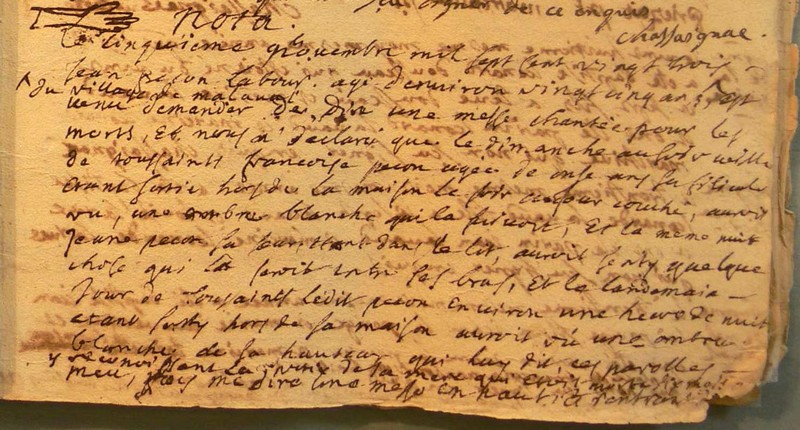 signer de ce enquis
chassagnac.
Nota.
Le cinquieme 9bovembre mil sept cent vingt trois
Jean pecon labour. agé denviron vingt cinq ans, est
^ du village de malaval
venu demander de dire une messe chantée pour les
morts, Et nous a declaré que le dimanche au soir veille
de toussaints francoise pecon agée de onse ans sa filieule
etant sortie hors de la maison le soir auroit
vu, une ombre blanche qui la suivoit, Et la meme nuit
Jeane pecon sa seur etant dans le lit, auroit senty quelque
chose qui la seroit entre ses bras, Et le landemain
Jour de Toussaints ledit pecon Environ une heure de nuit
etant sorty hors de sa maison auroit vû une ombre
blanche de sa hauteur qui luy dit, ces parolles
y reconoissant la voix de sa mere qui etoit morte
meu, fais me dire une messe en haut